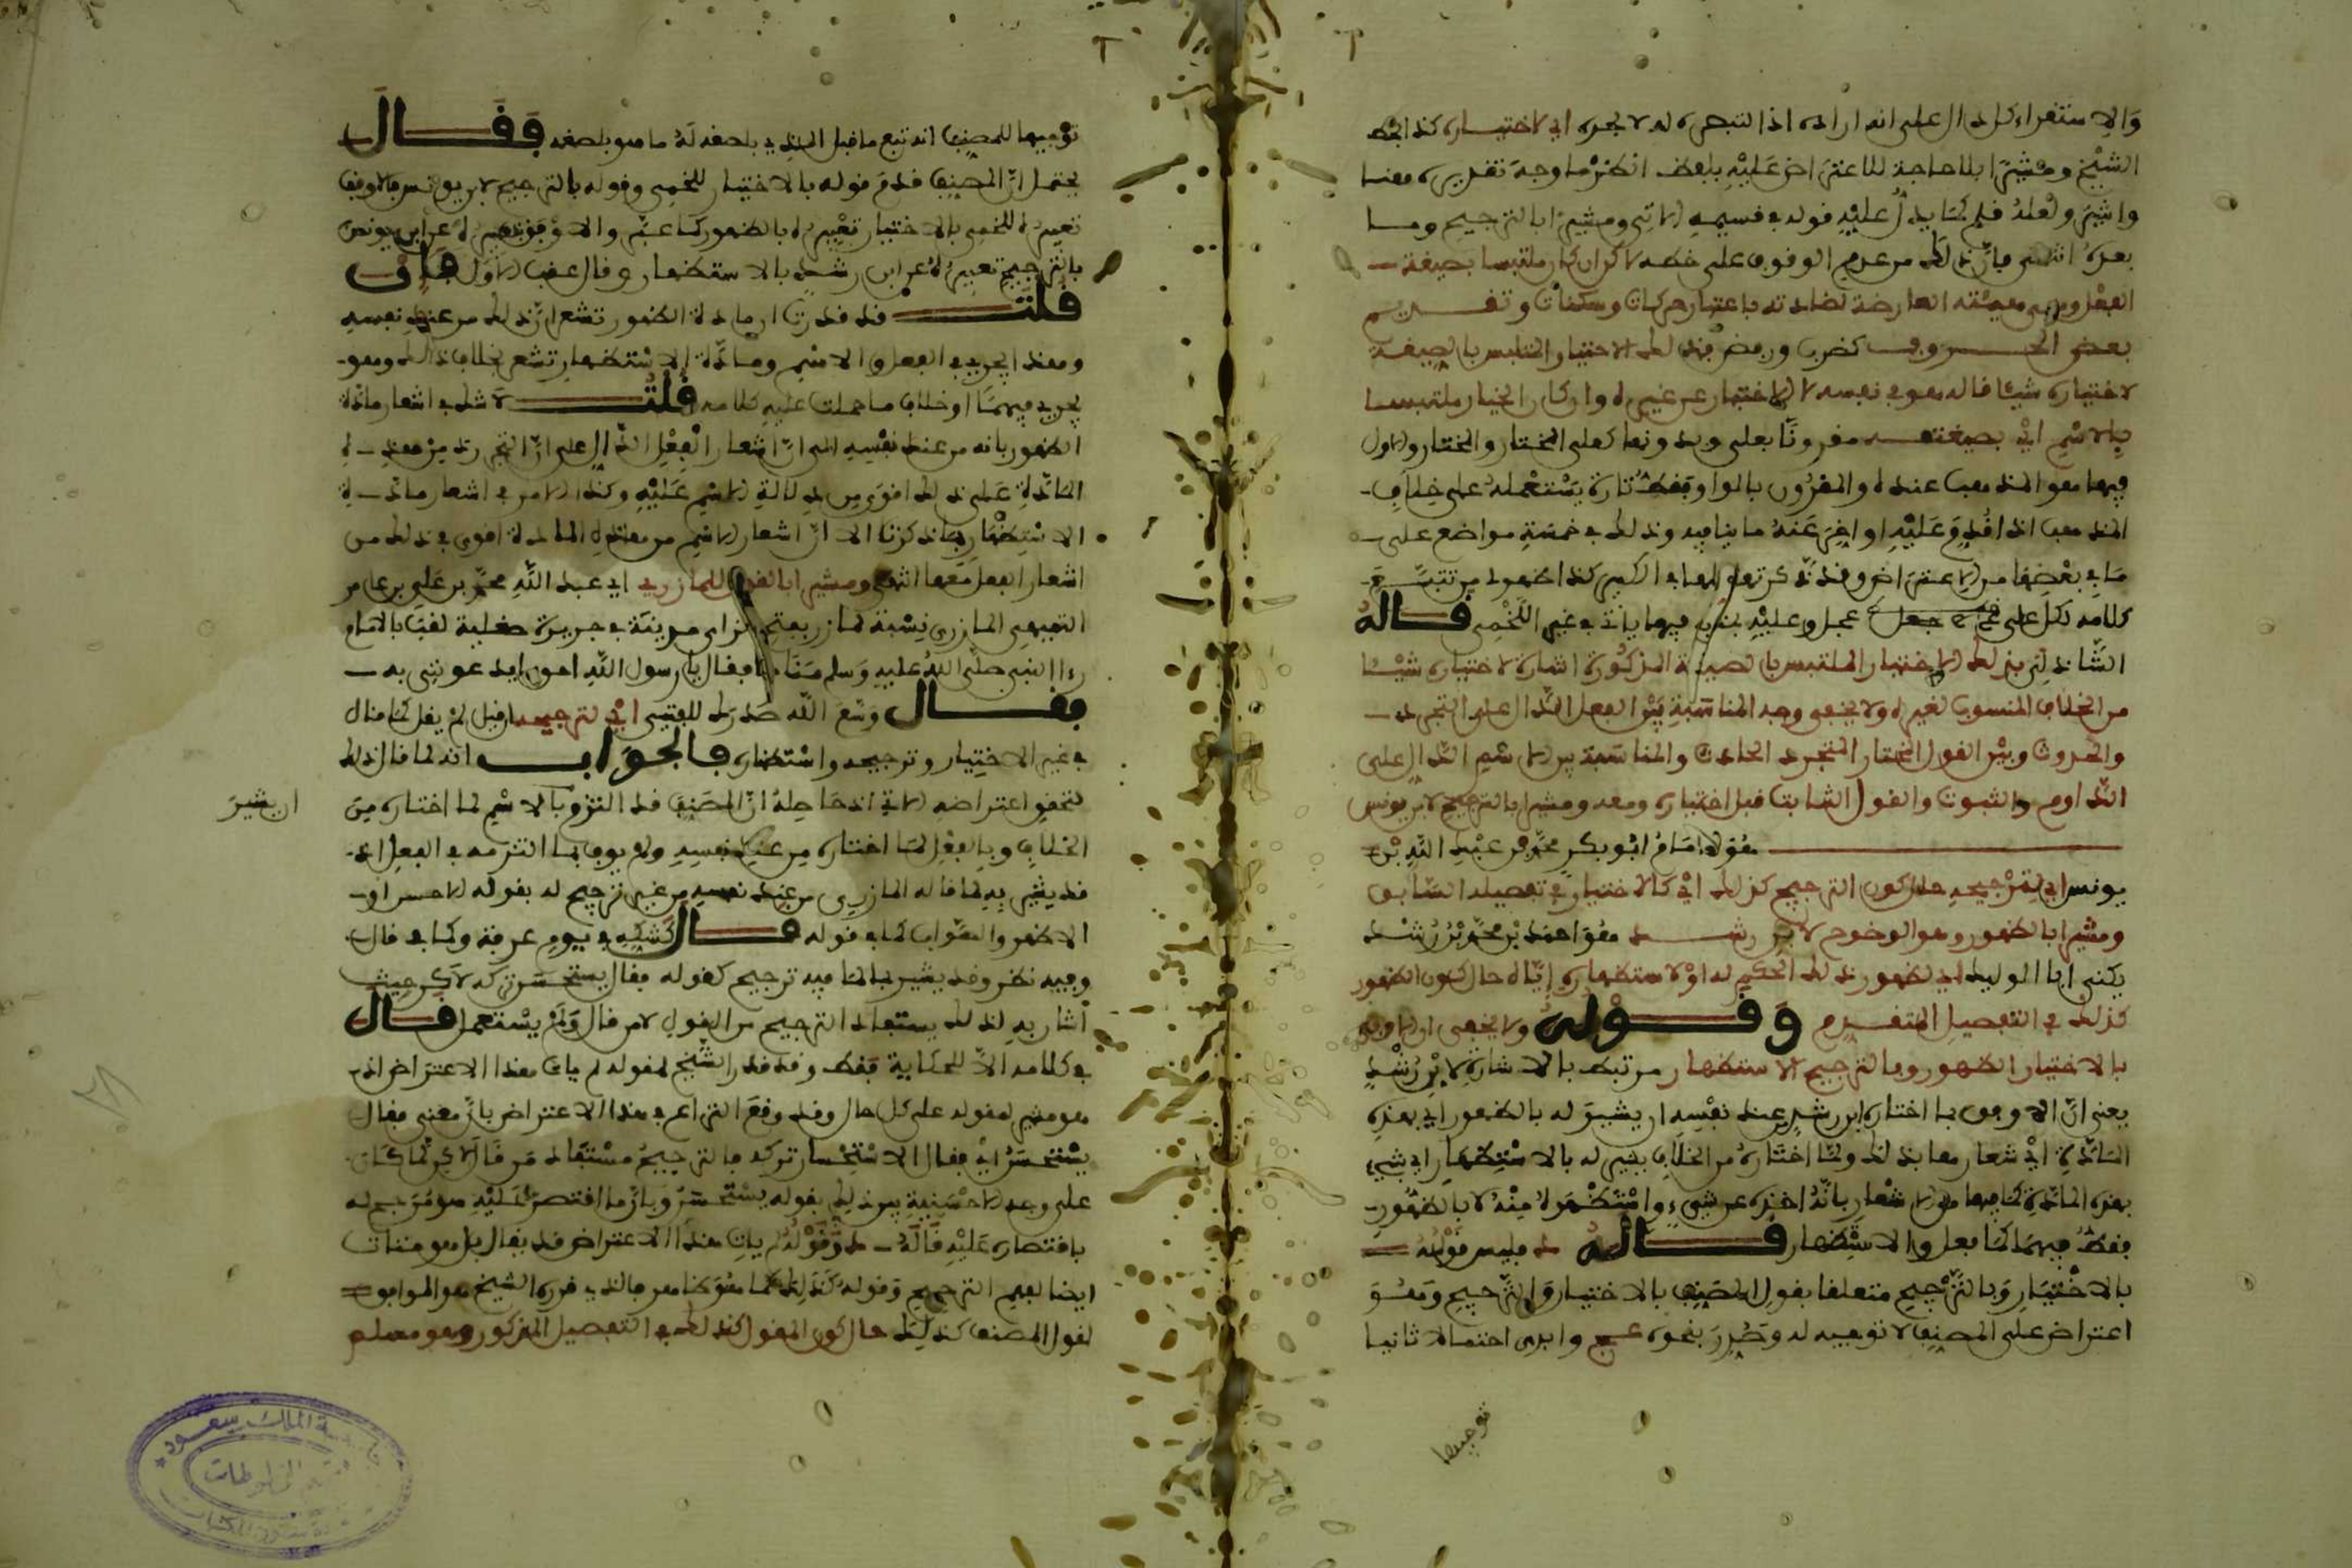 والاستقراء كل دال على انه اراده اذا لتبصره له لا بجره اي لاختياره كذا بخط
الشيخ ومشيرا بلا حاجة للاعتراض عليه بلفظ انكثر ما وجه تقديره معنا
واشير ولعله فلم كما يدل عليه قوله في قسيمه الاتي ومشيرا بالترجيح وما
بعده
الفعل وهي هيئته العارضة لمادته باعتبار حركات وسكنات وتقديم
بعض الحروف كضرب وربض فذلك الاختيار الملتبس بالصيغة
لاختياره شيئا قاله هو في نفسه لا لاختيار عن غيره وان كان الخيار ملتبسا
بالاسم اي بصيغته مقرونا بعلى وبدونها كعلى المختار والمختار والاول
فيها هو المذهب عنده والمقرون بالواو فقط تارة يستعمله على خلاف
المذهب اذا قدم عليه او اخر عنه ما ينافيه وذلك في خمسة مواضع على
ما في بعضها من الاعتراض وقد ذكر كذا اظهر لمن تتبع
كلامه لكل على عج عجل وعليه فيها يات في غير اللخمي قاله
الشاذلي بذلك الاختيار الملتبس بالصيغة المذكورة اشارة لاختياره شيئا
من الخلاف المنسوب لغيره ولا يخفى وجه المناسبة بين الفعل الدال على التجدد
والحدوث وبين القول المختار المتجدد الحادث والمناسبة بين الاسم الدال على
الدوام والثبوت والقول الثابت قبل اختياره ومعه ومشيرا بالترجيح لابن يونس
هو الامام ابو بكر محمد بن عبد الله بن
يونس اي لترجيحه حال كون الترجيح كذلك اي كالاختيار في تفصيله السابق
ومشيرا بالظهور وهو الوضوح لابن رشد هو احمد بن محمد بن رشد
يكنى ابا الوليد اي لظهور ذلك الحكم له او لاستظهاره اياه حال كون الظهور
كذلك في التفصيل المتقدم وقوله ولا يخفى ان الاولى
بالاختيار الظهور وبالترجيح الاستظهار مرتبط بالاشارة لابن رشد
يعني ان الاوفق بما اختاره ابن رشد من عند نفسه ان يشير له بالظهور اي بهذه
المادة اي شعارها بذلك ولما اختاره من الخلاف يشير له بالاستظهار اي بشيء
بهذه المادة لما فيها من الاشعار بانه اخذه عن شيء واستظهر له منه لا بالظهور
فقط فيهما كما فعل والاستظهار قاله د فليس قوله
بالاختيار وبالترجيح متعلقا بقول المصنف بالاختيار والترجيح وهو
اعتراض على المصنف لا توجيه له وقرر بنحوه عج وابدى احتمالا ثانيا
توجيها
توجيها للمصنف انه تبع ما قبل الذي يلصقه له ما هو يلصقه فقال
يحتمل ان المصنف قدم قوله بالاختيار للخمي وقوله بالترجيح لابن يونس فالاوفق
تعبيره للخمي بالاختيار تعبيره بالظهور كما عبر والاوفق بتعبيره عن ابن يونس
بالترجيح تعبيره عن ابن رشد بالاستظهار وقال عقب الاول فان
قلت قد قدرت ان مادة الظهور تشعر ان ذلك من عند نفسه
وهذا يجري في الفعل والاسم ومادة الاستظهار تشعر بخلاف ذلك وهو
يجري فيهما او خلاف ما حملت عليه كلامه قلت لا شك في اشعار مادة
الظهور بانه من عند نفسه الا ان اشعار الفعل الدال على ان التجدد من هذه
المادة على ذلك اقوى من دلالة الاسم عليه وكذا الامر في اشعار مادة
الاستظهار بما ذكرنا الا ان اشعار الاسم من هذه المادة اقوى في ذلك من
اشعار الفعل معها انتهى ومشيرا بالقول للمازري اي عبد الله محمد بن علي بن عمر
التميمي المازري نسبة لمازر بفتح الزاي مدينة في جزيرة صقلية لقب بالامام
رءا النبي صلى الله عليه وسلم مناما فقال يا رسول الله اهوى ايدعونني به
فقال وسع الله صدرك للفتيى اي لترجيحه ان قيل لم يقل كما قال
في غير الاختيار وترجيحه واستظهاره فالجواب انه لما قال ذلك
لتحقق اعتراضه الاتي اذ حاصله ان المصنف قد التزم بالاسم لما اختاره من
الخلاف وبالفعل لما اختاره من عند نفسه ولم يوف بما التزمه في الفعل اذ
قد يشير به لما قاله المازري من عند نفسه من غير ترجيح له بقوله الاحسن او
الاظهر والصواب كما في قوله قال كشكه في يوم عرفة وكما في قال
وفيه نظر وقد يشير بما لما فيه ترجيح كقوله فقال يستحسن تركه لا كن حيث
اشار به لذلك يستفاد الترجيح من القول لا من قال ولم يستعمل قال
في كلامه الا للحكاية فقط وقد قدر الشيخ لمقوله لم يات هذا الاعتراض اذ
هو مشير لمقوله على كل حال وقد وقع النزاع في هذا الاعتراض بان معنى فقال
يستحسن اي فقال الاستحسان تركه فالترجيح مستفاد من قال لا كن لما كان
على وجه الاحسنية بين ذلك بقوله يستحسن وبان ما اقتصر عليه هو مرجح له
باقتصاره عليه قاله د وقوله لم يات هذا الاعتراض قد يقال بل هو هنا ات
ايضا لعدم الترجيح وقوله كذلك كما هو ظاهر فالذي قرره الشيخ هو الموافق
لقول المصنف كذلك حال كون المقول كذلك في التفصيل المذكور وهو مسلم
ابن بشير
جامعة الملك سعود
قسم المخطوطات